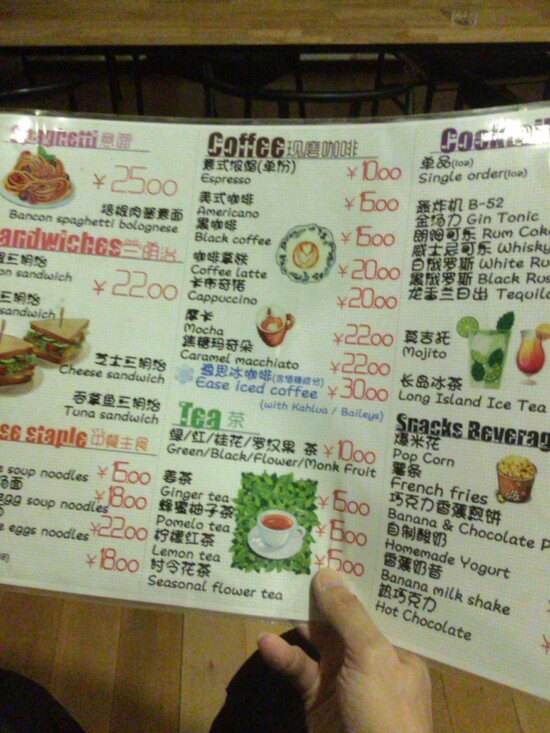 Spaghetti 意面
¥25.00
培根肉酱意面
Bancon spaghetti bolognese
Sandwiches 三明治
三明治
sandwich
¥22.00
三明治
sandwich
芝士三明治
Cheese sandwich
吞拿鱼三明治
Tuna sandwich
staple 中餐主食
soup noodles ¥15.00
汤面
egg soup noodles ¥18.00
eggs noodles ¥22.00
¥18.00
Coffee 现磨咖啡
意式浓缩(单份) ¥10.00
Espresso
美式咖啡 ¥15.00
Americano
黑咖啡 ¥15.00
Black coffee
咖啡拿铁 ¥20.00
Coffee latte
卡布奇诺 ¥20.00
Cappuccino
摩卡 ¥22.00
Mocha
焦糖玛奇朵 ¥22.00
Caramel macchiato
冰咖啡(含酒精成分) ¥30.00
Ease iced coffee
(with Kahlua / Baileys)
Tea 茶
绿/红/桂花/罗汉果 茶 ¥10.00
Green/Black/Flower/Monk Fruit
姜茶 ¥15.00
Ginger tea
蜂蜜柚子茶 ¥15.00
Pomelo tea
柠檬红茶 ¥15.00
Lemon tea
时令花茶
Seasonal flower tea
单品(1oz)
Single order(1oz)
轰炸机 B-52
金汤力 Gin Tonic
朗姆可乐 Rum Coke
威士忌可乐 Whisky
白俄罗斯 White Ru
黑俄罗斯 Black Rus
龙舌兰日出 Tequila
莫吉托
Mojito
长岛冰茶
Long Island Ice Tea
Snacks Beverag
爆米花
Pop Corn
薯条
French fries
巧克力香蕉煎饼
Banana & Chocolate P
自制酸奶
Homemade Yogurt
香蕉奶昔
Banana milk shake
热巧克力
Hot Chocolate